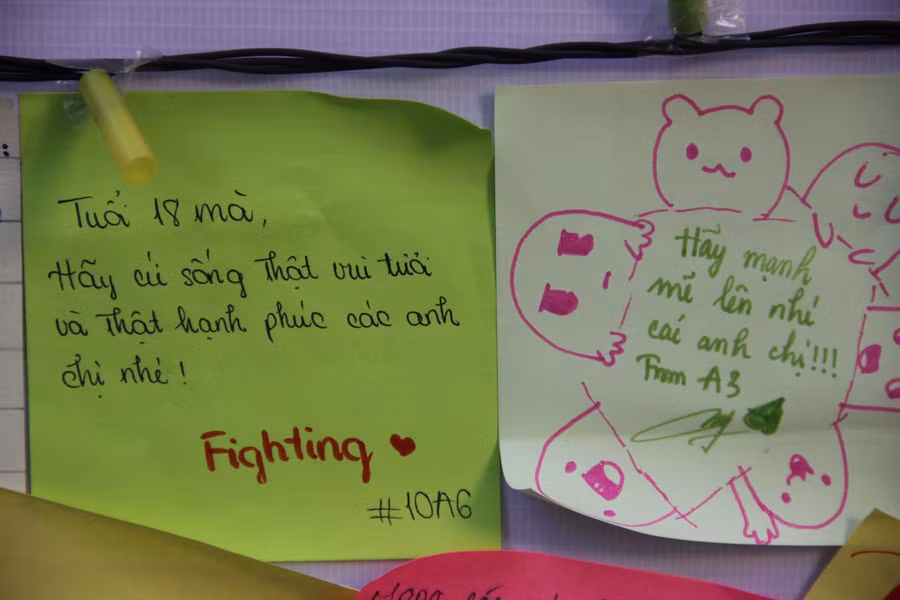 Tuổi 18 mà,
Hãy cứ sống thật vui tươi
và thật hạnh phúc các anh
chị nhé!
Fighting
#10A6
Hãy mạnh
mẽ lên nhé
các anh chị!!!
From A3